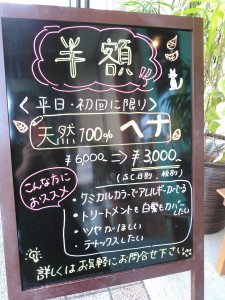 半額
<平日・初回に限り>
天然100%ヘナ
¥6,000 ⇒ ¥3,000~
(S.C.B別、税別)
こんな方に
おススメ
・ケミカルカラーでアレルギーがでる
・トリートメントも白髪もカバーしたい
・ツヤがほしい
・デトックスしたい
詳しくはお気軽にお問合せ下さい